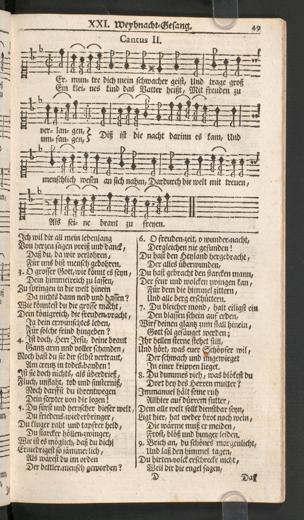 XXI. Weyhnacht-Gesang.
49
Cantus II.
Er. mun tre dich mein schwacher geist, Und trage groß
Ein klei-nes kind das Vatter heist, Mit freuden zu
ver- lan- gen,
um- fan- gen,
Diß ist die nacht darinn es kam, Und
menschlich wesen an sich nahm, Dardurch die welt mit treuen,
Als sei- ne braut zu freyen.
Ich wil dir all mein lebenlang
Von herzen sagen preiß und danck,
Daß du, da wir verlohren,
Für uns bist worden gebohren.
3. O grosser Gott, wie könnt es seyn,
Dein himmelreich zu lassen,
Zu springen in die welt hinein
Da nichts dann neid und hassen?
Wie konntest du die grosse macht,
Dein königreich, die freuden-pracht,
Ja dein erwünschtes leben,
Für solche feind hingeben?
4. Ist doch, Herr Jesu, deine braut
Gantz arm und voller schanden,
Noch hast du sie dir selbst vertraut,
Am creutz in todes-banden!
Ist sie doch nichts, als überdrieß,
Fluch, unflath, tod und finsterniß,
Noch darffst du ihrentwegen
Dein scepter von dir legen!
5. Du fürst und herrscher dieser welt,
Du friedens-wiederbringer,
Du kluger rath und tapfrer held,
Du starcker höllen-zwinger,
Wie ist es möglich, daß du dich
Erniedrigest so jämmerlich,
Als wärest du im orden
Der bettler mensch geworden?
6. O freuden-zeit, o wunder-nacht,
Dergleichen nie gefunden!
Du hast den Heyland hergebracht,
Der alles überwunden,
Du hast gebracht den starcken mann,
Der feur und wolcken zwingen kan,
Für dem die himmel zittern,
Und alle berg erschüttern.
7. Du bleicher mond, halt eiligst ein
Den blassen schein auf erden,
Wirf deinen glantz zum stall hinein,
Gott sol gesäuget werden;
Ihr hellen sterne stehet still,
Und hört, was euer Schöpfer wil,
Der schwach und ungewieget
In einer krippen lieget.
8. Du dummes vieh, was blökest du
Dort bey des Herren mutter?
Immanuel hält seine ruh
Allhier auf dürrem futter,
Dem alle welt sollt dienstbar seyn,
Ligt hier, hat weder brot noch wein,
Die wärme muß er meiden,
Frost, blöß und hunger leiden.
9. Brich an, du schönes morgenlicht,
Und laß den himmel tagen,
Du hirten-volck erschrecke nicht,
Weil dir die engel sagen,
D
Daß